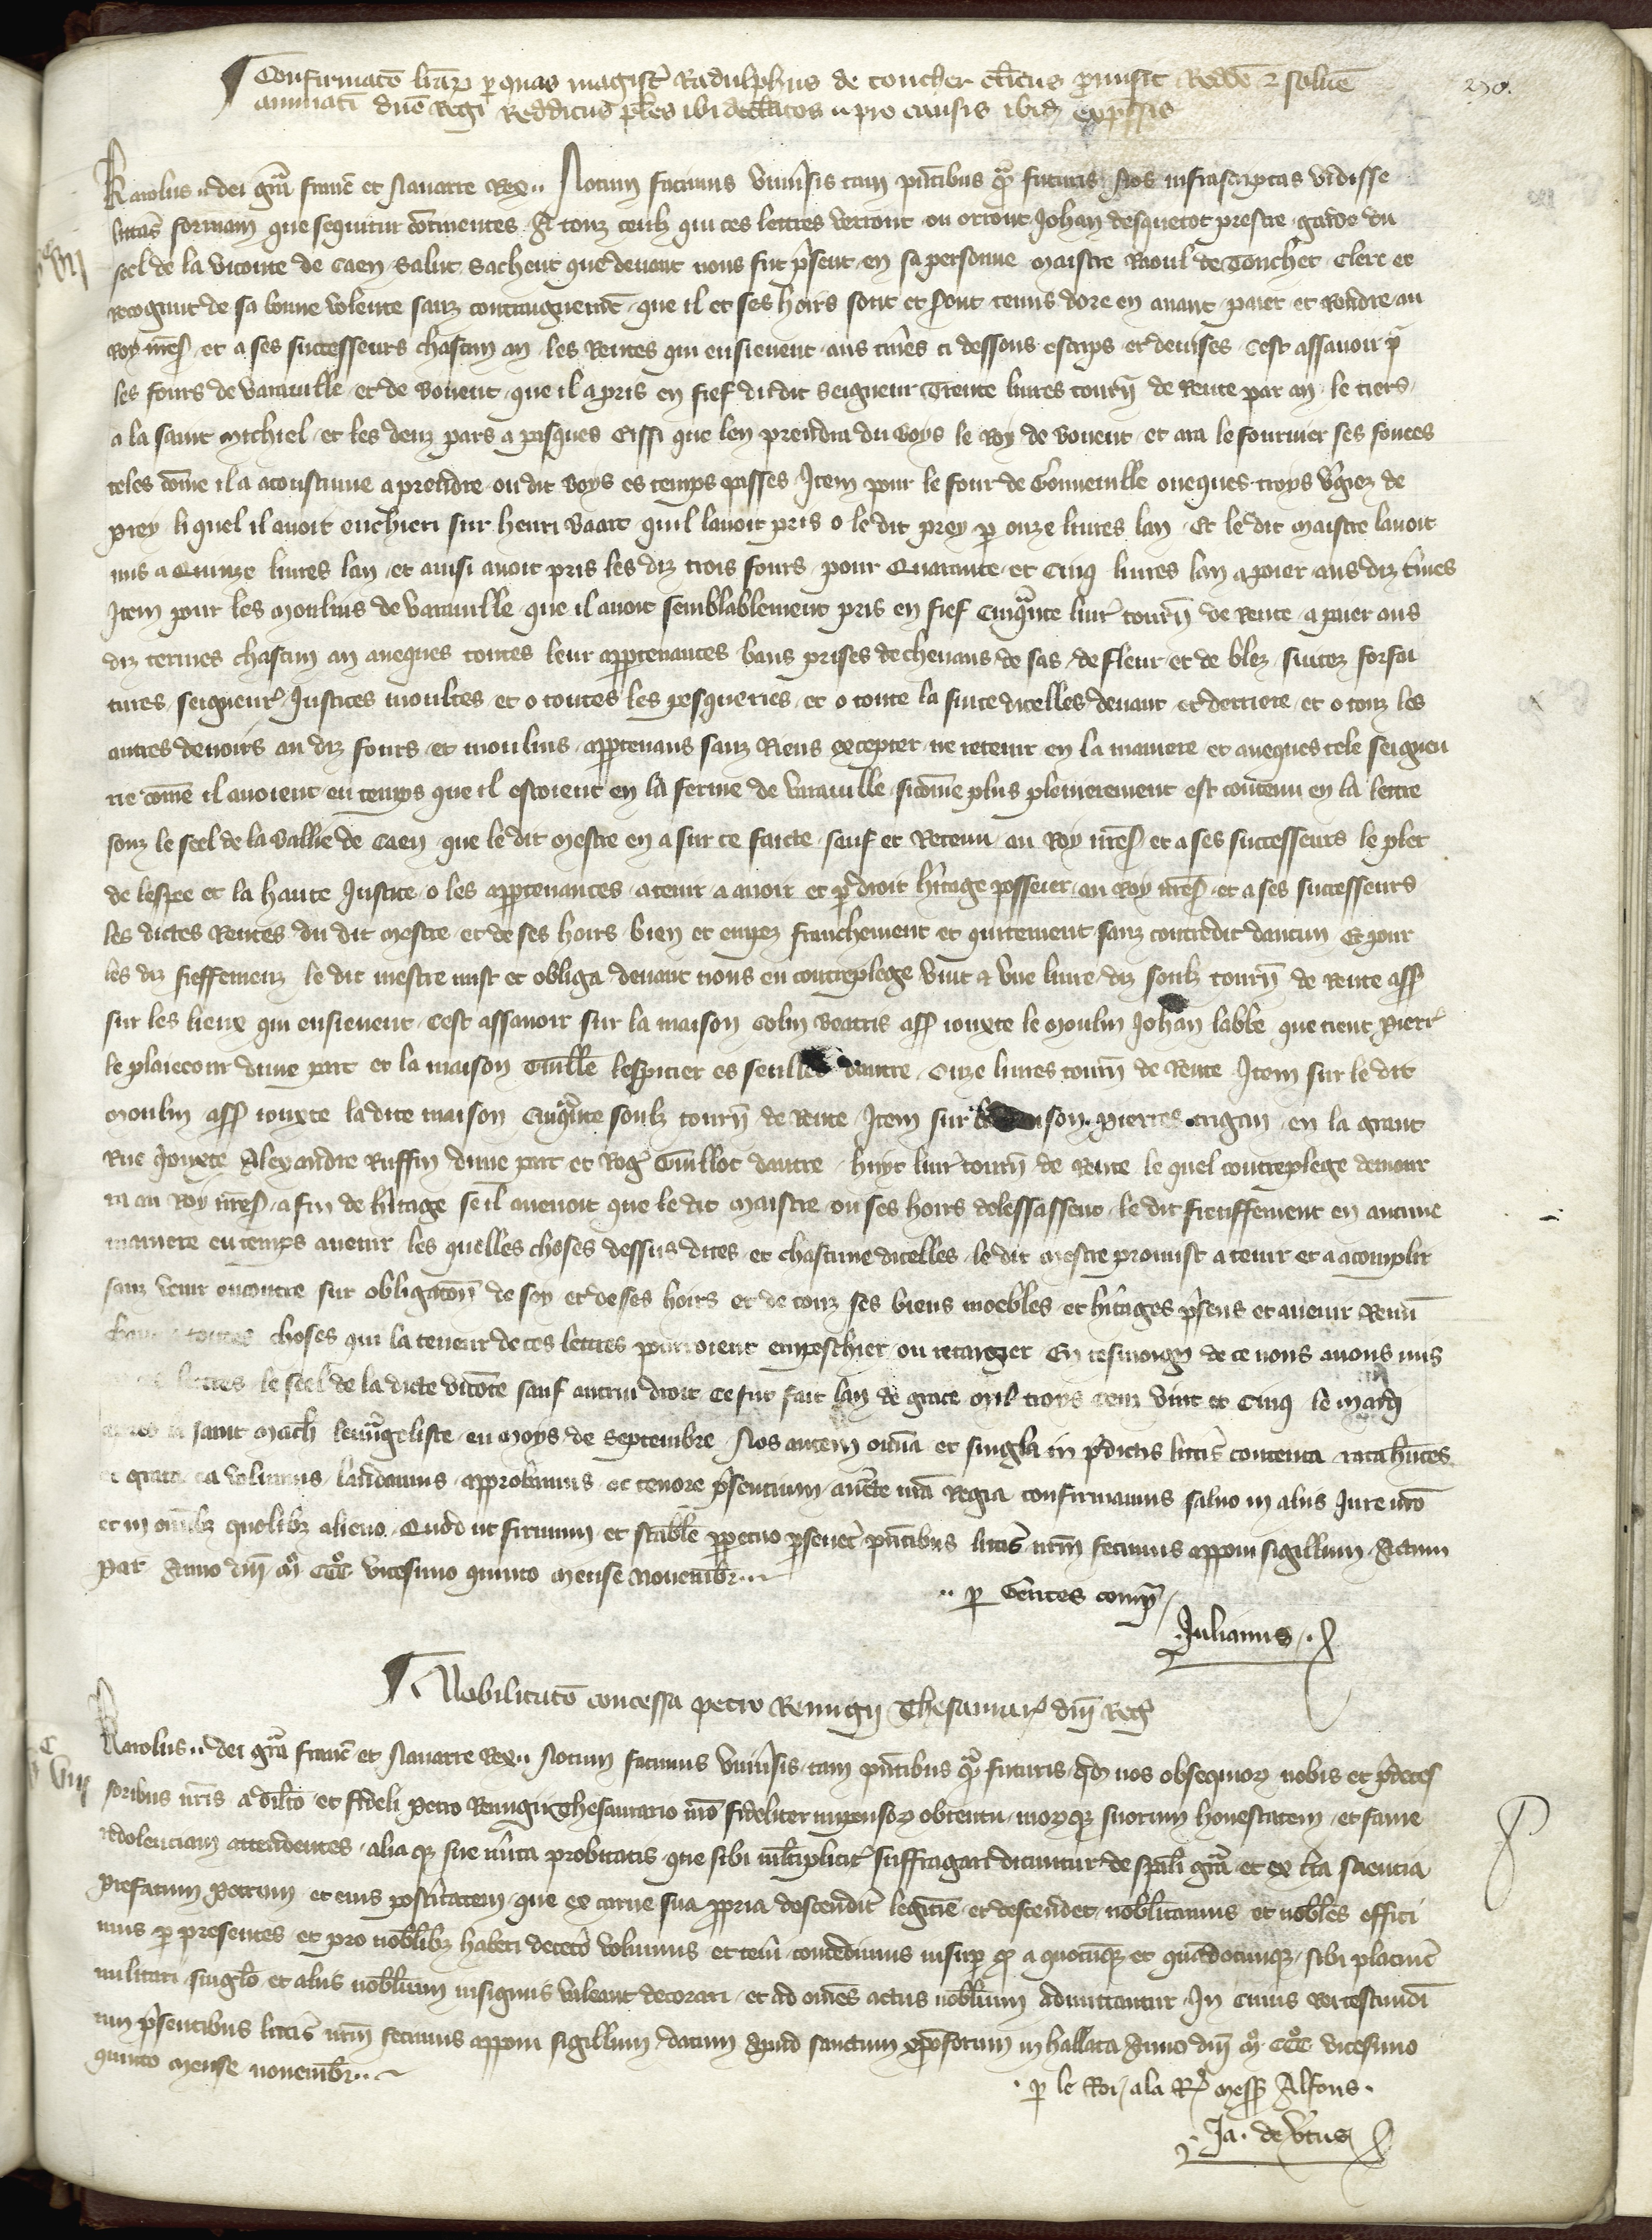 Confirmatō lrār p quas magistr̄ Radulphus de toucher clicus promisit Reddē ⁊ solvē 270.
annuatī dnō Regi Redditus ptes ibi declatos .. pro causis ibid expssis
Karolus .. dei grā francē et Navarre Rex .. Notum facimus univsis tam pntibus qua futuris Nos infrascriptas vidisse
litteras formam que sequitur continentes A touz ceulz qui ces lettres verront ou orront Johan desquetot prestre garde du
seel de la viconte de Caen Salut Sachent que devant nous fut present en sa personne maistre Raoul de Toucher Clerc et
recognut de sa bonne volente sanz contraignement que il et ses hoirs sont et seront tenus dore en avant paier et Rendre au
Roy nres et a ses successeurs chascun an les Rentes qui ensievent aus tmes ci dessous escrips et devises Cest assavoir pr
les fours de varaville et de bovent que il a pris en fief du dit seigneur Trente livres tourn de Rente par an le tiers
a la saint Michiel et les deuz pars a pasques Eissi que len prendra du boys le Roy de bovent et ara le fournier ses fouees
teles come il a acoustume a prendre ou dit boys es temps passes Item pour le four de Gonneville oveques troys vgiez de
prey li quel il avoit encheri sur henri baart quil lavoit pris o le dit prey p onze livres lan Et le dit Maistre lavoit
mis a Quinze livres lan et ainsi avoit pris les diz trois fours pour Quarante et Cinq livres lan a paier aus diz tmes
Item pour les Moulins de varaville que il avoit semblablement pris en fief Cinquante livr tourn de Rente a paier aus
diz termes chascun an aveques toutes leur apptenances bans prises de chevaus de sas de fleur et de blez suitez forfai
tures seigneur Justices moultes et o toutes les pesqueries et o toute la suite dicelles devant et derriere et o touz les
autres devoirs au diz fours et moulins apptenans sanz Riens excepter ne retenir en la maniere et aveques tele seigneu
rie come il avoient eu temps que il estoient en la ferme de varaville sicome plus plenierement est contenu en la lettre
souz le seel de la ballie de Caen que le dit Mestre en a sur ce faicte sauf et Retenu au Roy nres et a ses successeurs le plet
de lespee et la haute Justice o les apptenances a tenir a avoir et pr droit hitage posseer au Roy nres et a ses successeurs
les dictes Rentes du dit Mestre et de ses hoirs bien et empez franchement et quitement sanz contredit daucun Et pour
les diz fieffemenz le dit mestre mist et obliga devant nous en contreplege vint et une livre diz soulz tourn de Rente ass
sur les lieux qui ensievent Cest assavoir sur la maison Colin beatris ass jouxte le Moulin Johan labbe que tient pierr
le plaiecour dune part et la maison Guille lespicier es seulles dautre Onze livres tourn de Rente Item sur le dit
Moulin ass jouxte la dite maison Cinquante soulz tourn de Rente Item sur la maison pierres angan en la grant
Rue Jouxte Alexandre Ruffin dune part et Rog Guillot dautre huyt livr tourn de Rente le quel contreplege demour
ra au Roy nres a fin de hitage se il avenoit que le dit Maistre ou ses hoirs delessassent le dit fieuffement en aucune
maniere eu temps avenir les quelles choses dessus dites et chascune dicelles le dit Mestre promist a tenir et a acomplir
sanz venir encontre sur obligaton de soy et de ses hoirs et de touz ses biens moebles et hitages psens et avenir Renū
toutes choses qui la teneur de ces lettres pourroient empeschier ou retarger En tesmoign de ce nous avons mis
lettres le seel de la dicte vicote sauf autrui droit Ce fut fait lan de grace Mil troys cenz vint et Cinq le mardi
saint Math levangeliste eu Moys de Septembre Nos autem omia et singla in pdictis litteris contenta rata hntes
et grata ea volumus laudamus approbamus ac tenore psentium aucte nra Regia confirmamus salvo in aliis Jure nro
et in omibz quolibz alieno Quod ut firmum et stable ppetuo pseveret pntibus litteris nrm fecimus apponi sigillum Actum
Par Anno dni Mo CCCo vicesimo quinto Mense Novembr ..
.. p Gentes compr
Julianus
Nobilitato concessa petro Remigii Thesaurar dni Regs
Karolus .. dei grā francē et Navarre Rex .. Notum facimus Univsis tam pntibus qua futuris qd nos obsequior nobis et pdeces
soribus nris a dilco et fideli Petro Remigii Thesaurario nro fideliter impensor obtentu morqz suorum honestatem et fame
redolenciam attendentes aliaqz sue merita probitatis que sibi multiplicit suffragari dicuntur de spali gra et ex cta sciencia
prefatum Petrum et eius posteritatem que ex carne sua ppria descendit legitie et descendet nobilitamus et nobiles effici
mus p presentes et pro nobilibz haberi decetero volumus et teneri concedimus insup qd a quocunqz et quandocunqz sibi placuit
militari singlo et aliis nobilium insigniis valeant decorari et ad omes actus nobilium admittantur In Cuius Rei testimoni
um psentibus litteris nrm fecimus apponi sigillum datum apud sanctum xpoforum in hallata Anno dni Mo CCCo vicesimo
quinto Mense novembr ..
p le Roi a la Rel mess Alfons
Ja. de Vtus